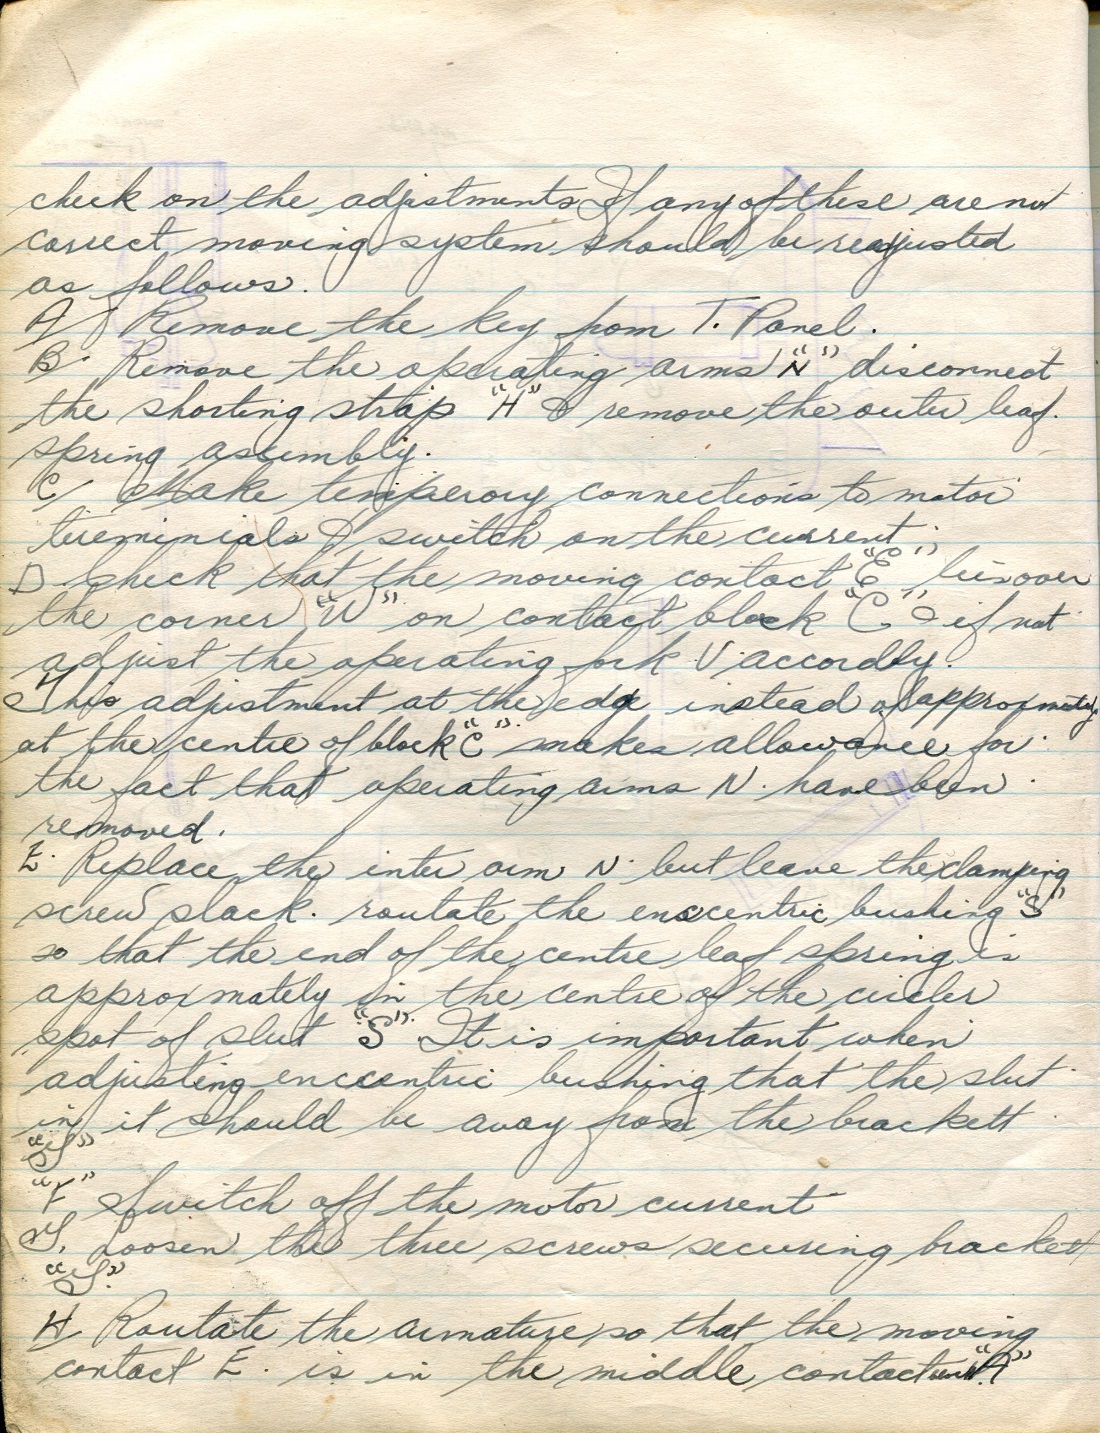 check on the adjustments If any of these are not
correct moving system should be readjusted
as follows.
A/ Remove the key from T. Panel.
B. Remove the operating arms "N" disconnect
the shorting strap "H" & remove the outer leaf.
spring assembly.
C/ Make temperory connections to motor
tereminials & switch on the current.
D Check that the moving contact "E" lies over
the corner "U" on contact block "C" & if not
adjust the operating fork V accordly.
This adjustment at the edge instead of approxmately
at the centre of block "C" makes allowance for
the fact that operating arms N. have been
removed.
E. Replace the inter arm N. but leave the clamping
screw slack. routate the enccentric bushing "S"
so that the end of the centre leaf spring is
approxmately in the centre of the circler
spot of slut "S". It is important when
adjusting enccentric bushing that the slut
in it should be away from the brackett
"F" Switch off the motor current
G. Loosen the three screws securing brackett
H Routate the armature so that the moving
contact E. is in the middle contact "A"